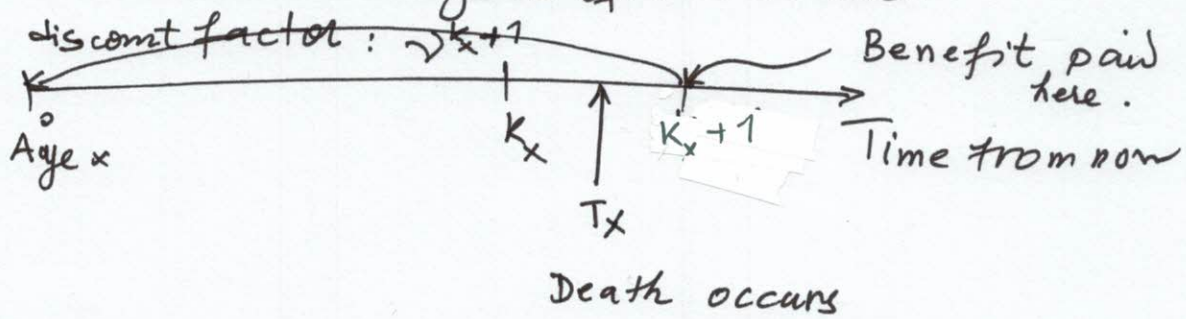 discount factor : v^{K_x+1}
Benefit paid
here .
0
K_x
K_x + 1
Age x
Time from now
T_x
Death occurs